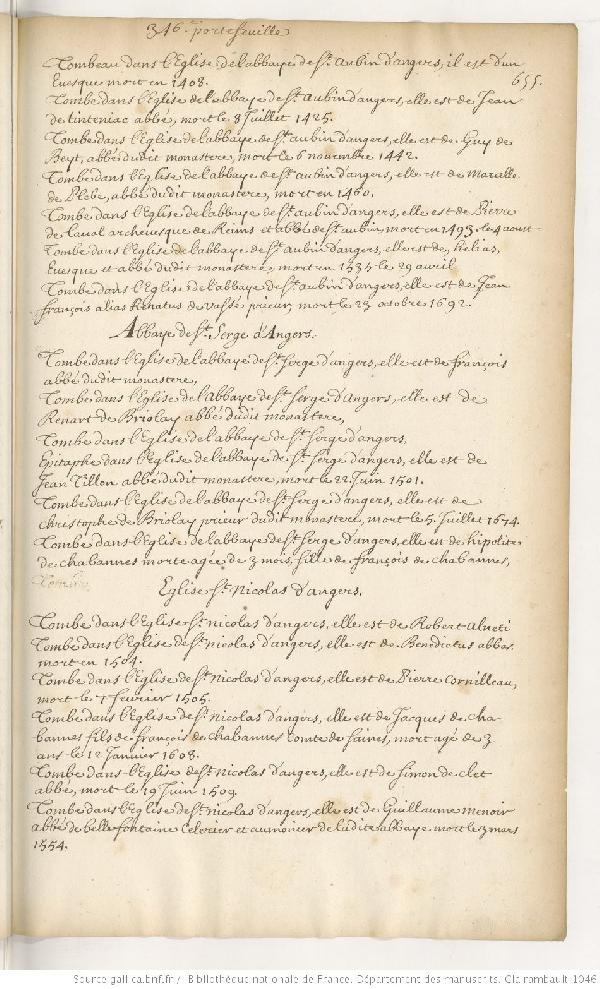 346e portefeuille
655.
Tombeau dans l'Eglise de l'abbaye de St. aubin d'angers, il est d'un
Euesque mort en 1408.
Tombe dans l'Eglise de l'abbaye de St. aubin d'angers, elle est de Jean
de tinteniac abbé, mort le 8 Juillet 1425.
Tombe dans l'Eglise de l'abbaye de St. aubin d'angers, elle est de Guy de
Beyt, abbé dudit monastere, mort le 6 novembre 1442.
Tombe dans l'Eglise de l'abbaye de St. aubin d'angers, elle est de
de Plebe, abbé dudit monastere, mort en 1460.
Tombe dans l'Eglise de l'abbaye de St. aubin d'angers, elle est de Pierre
de Laual archeuesque de Reims et abbé de St. aubin, mort en 1493. le 4 aoust.
Tombe dans l'Eglise de l'abbaye de St. aubin d'angers, elle est de, helias,
Euesque et abbé dudit monastere, mort en 1535 le 29 avril
Tombe dans l'Eglise de l'abbaye de St. aubin d'angers, elle est de Jean
françois alias Renatus de vassé prieur, mort le 23 octobre 1692.
Abbaye de St. Serge d'Angers.
Tombe dans l'Eglise de l'abbaye de St. serge d'angers, elle est de françois
abbé dudit monastere,
Tombe dans l'Eglise de l'abbaye de St. serge d'Angers, elle est de
Renart de Briolay abbé dudit monastere,
Tombe dans l'Eglise de l'abbaye de St. serge d'angers,
Epitaphe dans l'Eglise de l'abbaye de St. serge d'angers, elle est de
Jean Tillon abbé dudit monastere, mort le 22 Juin 1501.
Tombe dans l'Eglise de l'abbaye de St. serge d'angers, elle est de
christophe de Briolay prieur dudit monastere, mort le 5. Juillet 1674.
Tombe dans l'Eglise de l'abbaye de St. serge d'angers, elle est de hipolite
de chabannes morte agée de 3 mois, fille de françois de chabannes,
Eglise St. Nicolas d'angers,
Tombe dans l'Eglise St. nicolas d'angers, elle est de Robert alueti
Tombe dans l'Eglise de St. nicolas d'angers, elle est de Benedictus abbas
mort en 1504.
Tombe dans l'Eglise de St. Nicolas d'angers, elle est de Pierre Cornilleau,
mort le 7 fevrier 1505.
Tombe dans l'Eglise de St. Nicolas d'angers, elle est de Jacques de cha-
bannes fils de françois de chabannes comte de saines, mort agé de 3
ans le 12 Janvier 1608.
Tombe dans l'Eglise de St. nicolas d'angers, elle est de simon de clet
abbé, mort le 19 Juin 1509.
Tombe dans l'Eglise de St. nicolas d'angers, elle est de Guillaume menoir
abbé de belle fontaine Celerier et aumonier de ludite abbaye mort le 3 mars
1554.
Source gallica.bnf.fr / Bibliothèque nationale de France. Département des manuscrits. Clairambault 1046